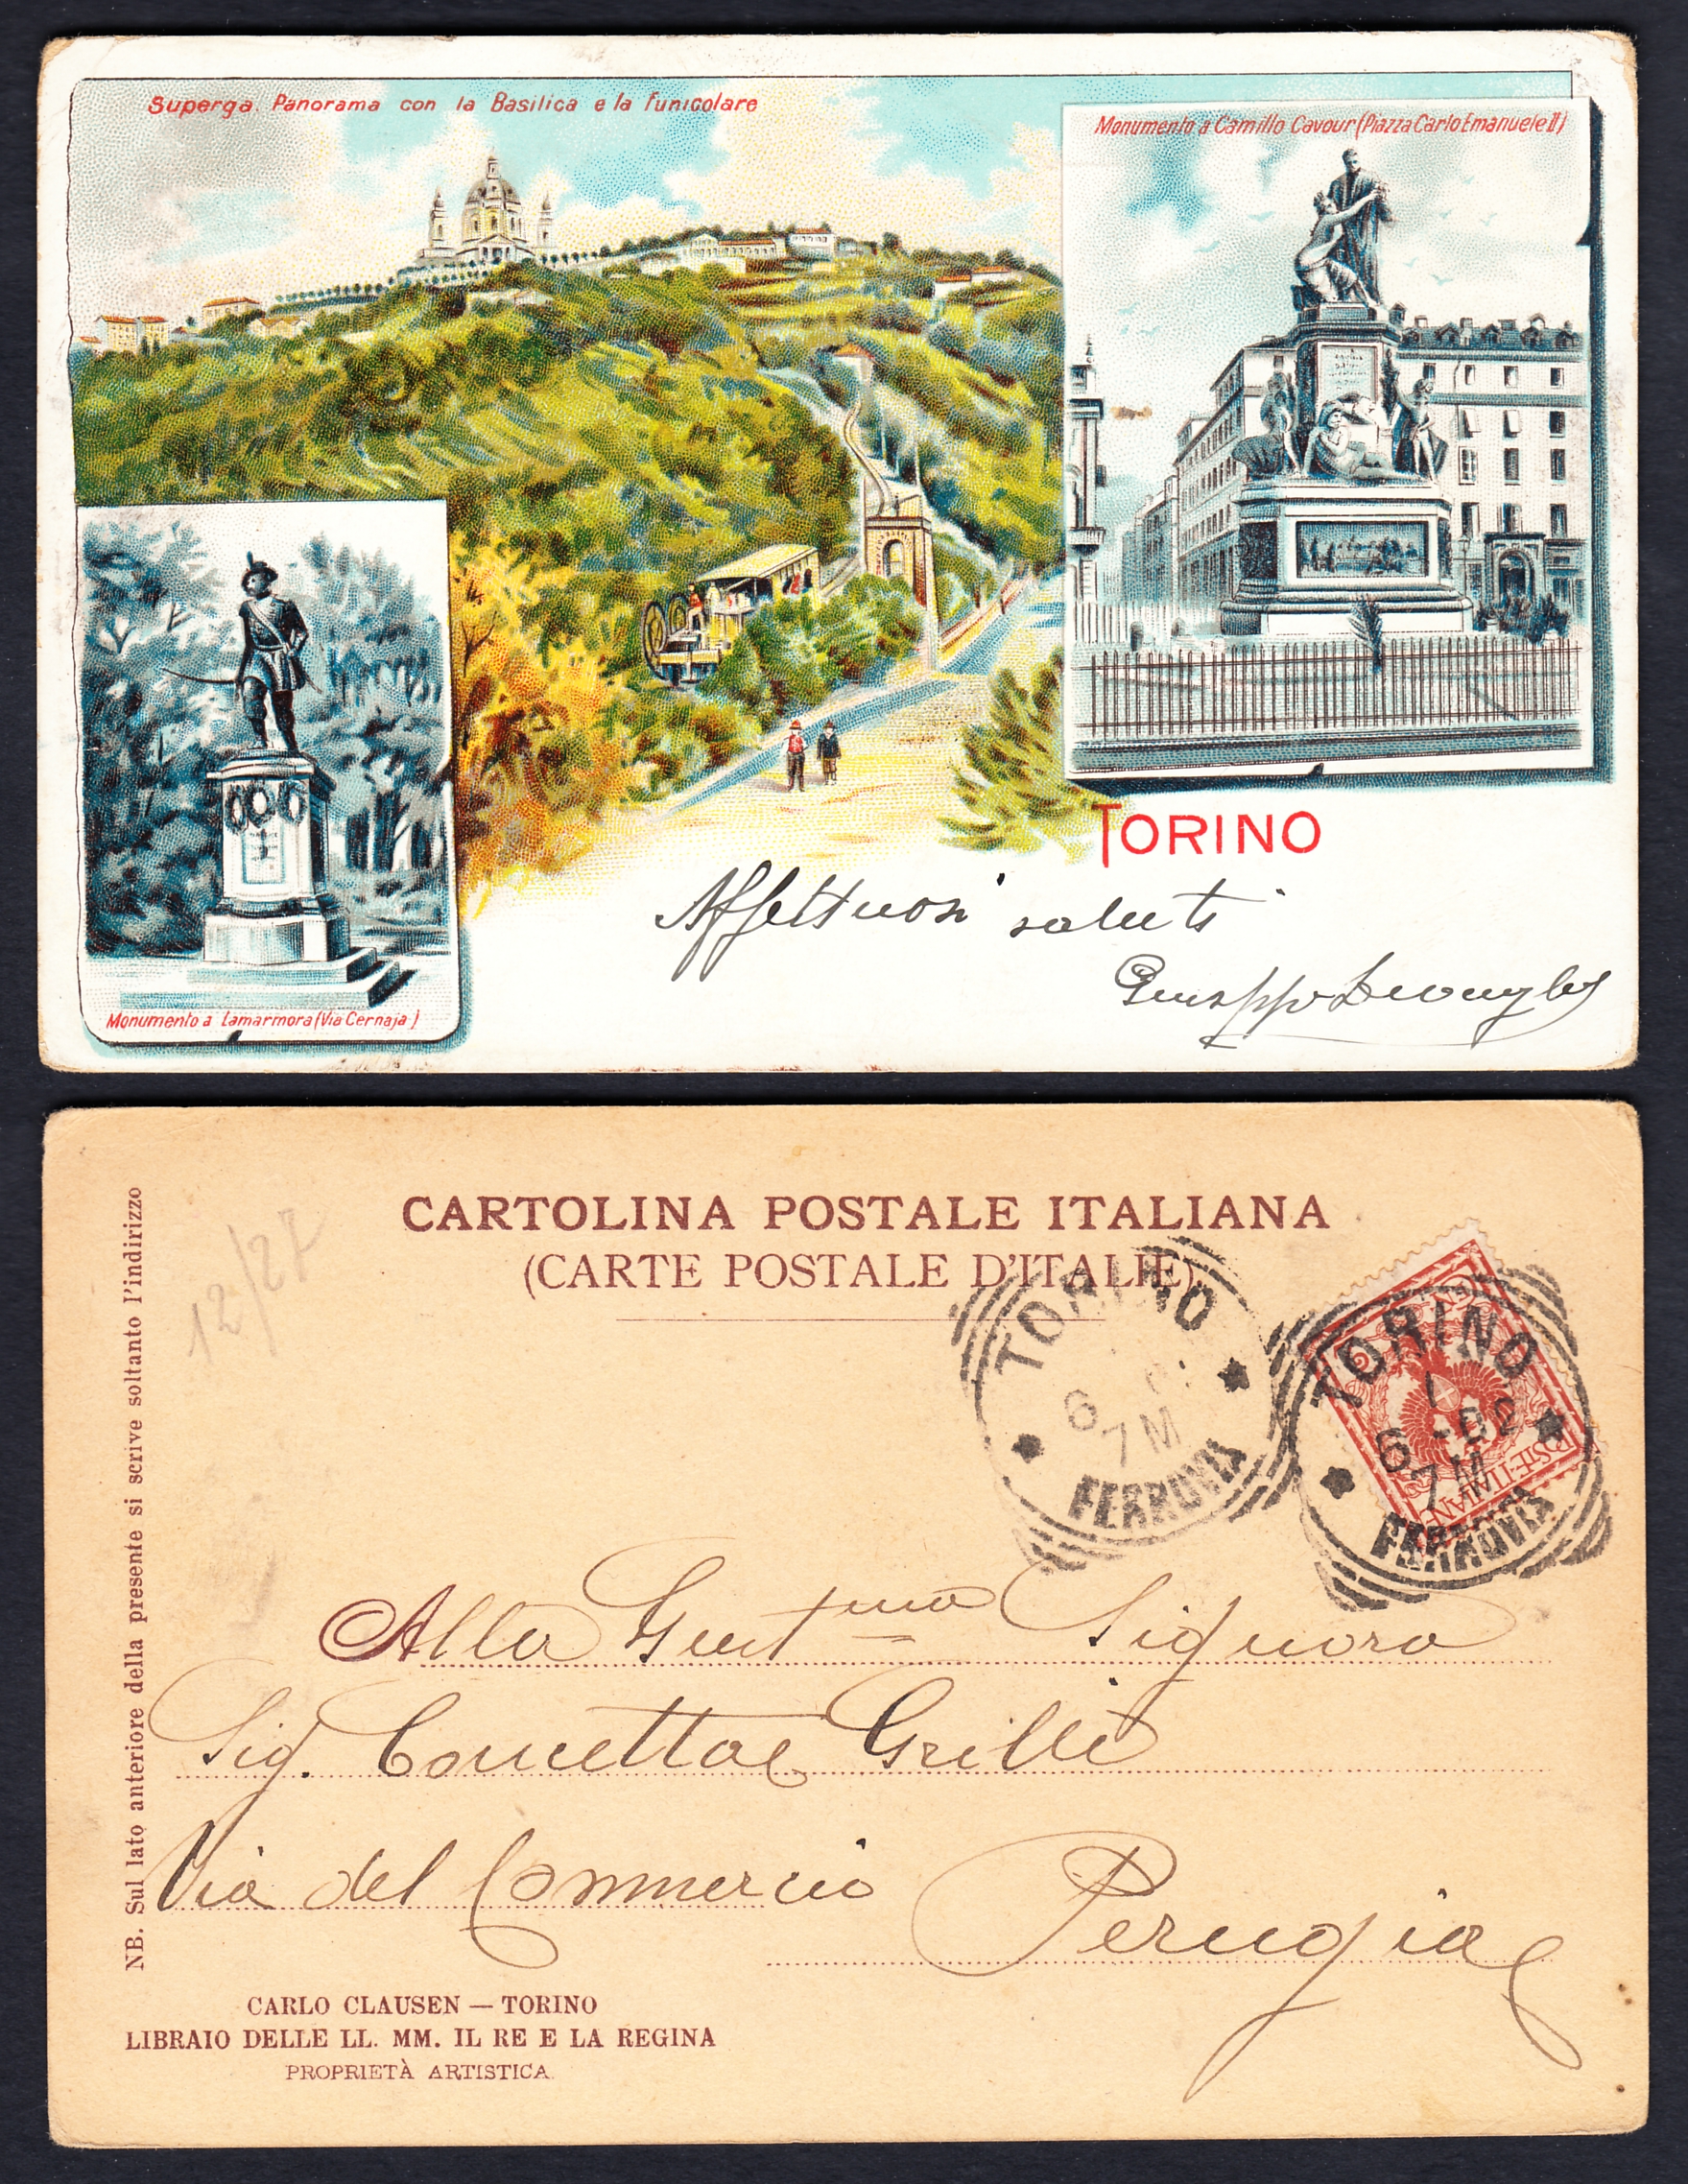 Superga. Panorama con la Basilica e la funicolare
Monumento a Camillo Cavour (Piazza Carlo Emanuele II)
TORINO
Affettuosi saluti
Giuseppe
Monumento a Lamarmora (Via Cernaja)
CARTOLINA POSTALE ITALIANA
(CARTE POSTALE D'ITALIE)
NB. Sul lato anteriore della presente si scrive soltanto l'indirizzo
12/27
TORINO
6
7M
FERROVIA
TORINO
1
6 -02
7M
FERROVIA
Alla Gentma Signora
Sig. Concetta Grilli
Via del Commercio
Perugia
CARLO CLAUSEN — TORINO
LIBRAIO DELLE LL. MM. IL RE E LA REGINA
PROPRIETÀ ARTISTICA